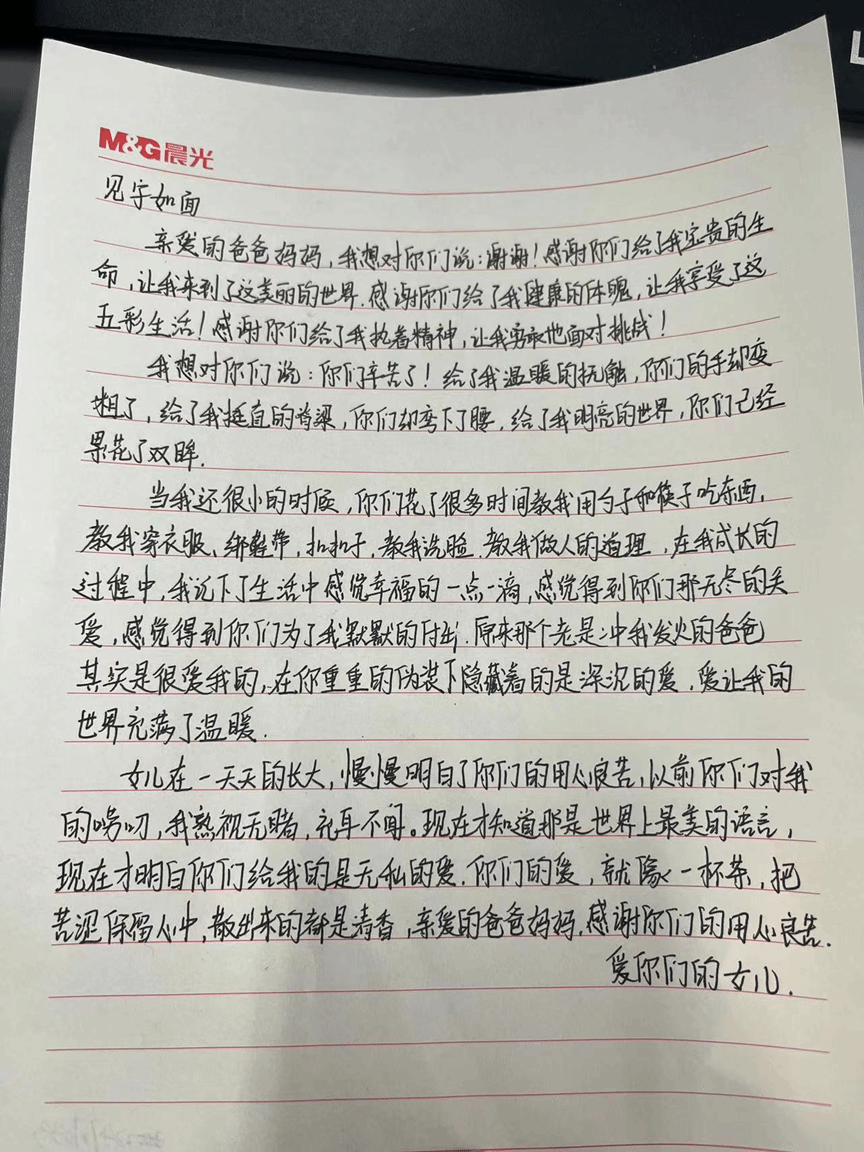 M&G 晨光
见字如面
亲爱的爸爸妈妈，我想对你们说：谢谢！感谢你们给了我宝贵的生
命，让我来到了这美丽的世界.感谢你们给了我健康的体魄，让我享受了这
五彩生活！感谢你们给了我执着精神，让我勇敢地面对挑战！
我想对你们说：你们辛苦了！给了我温暖的抚触，你们的手却变
粗了，给了我挺直的脊梁，你们却弯下了腰，给了我明亮的世界，你们已经
累花了双眸.
当我还很小的时候，你们花了很多时间教我用勺子和筷子吃东西，
教我穿衣服、绑鞋带，扣扣子，教我洗脸.教我做人的道理，在我成长的
过程中，我记下了生活中感觉幸福的一点一滴，感觉得到你们那无尽的关
爱，感觉得到你们为了我默默的付出.原来那个老是冲我发火的爸爸
其实是很爱我的，在你重重的伪装下隐藏着的是深沉的爱，爱让我的
世界充满了温暖.
女儿在一天天的长大，慢慢明白了你们的用心良苦，以前你们对我
的唠叨，我熟视无睹，充耳不闻。现在才知道那是世界上最美的语言，
现在才明白你们给我的是无私的爱.你们的爱，就像一杯茶，把
苦涩保留心中，散出来的都是清香，亲爱的爸爸妈妈，感谢你们的用心良苦.
爱你们的女儿.